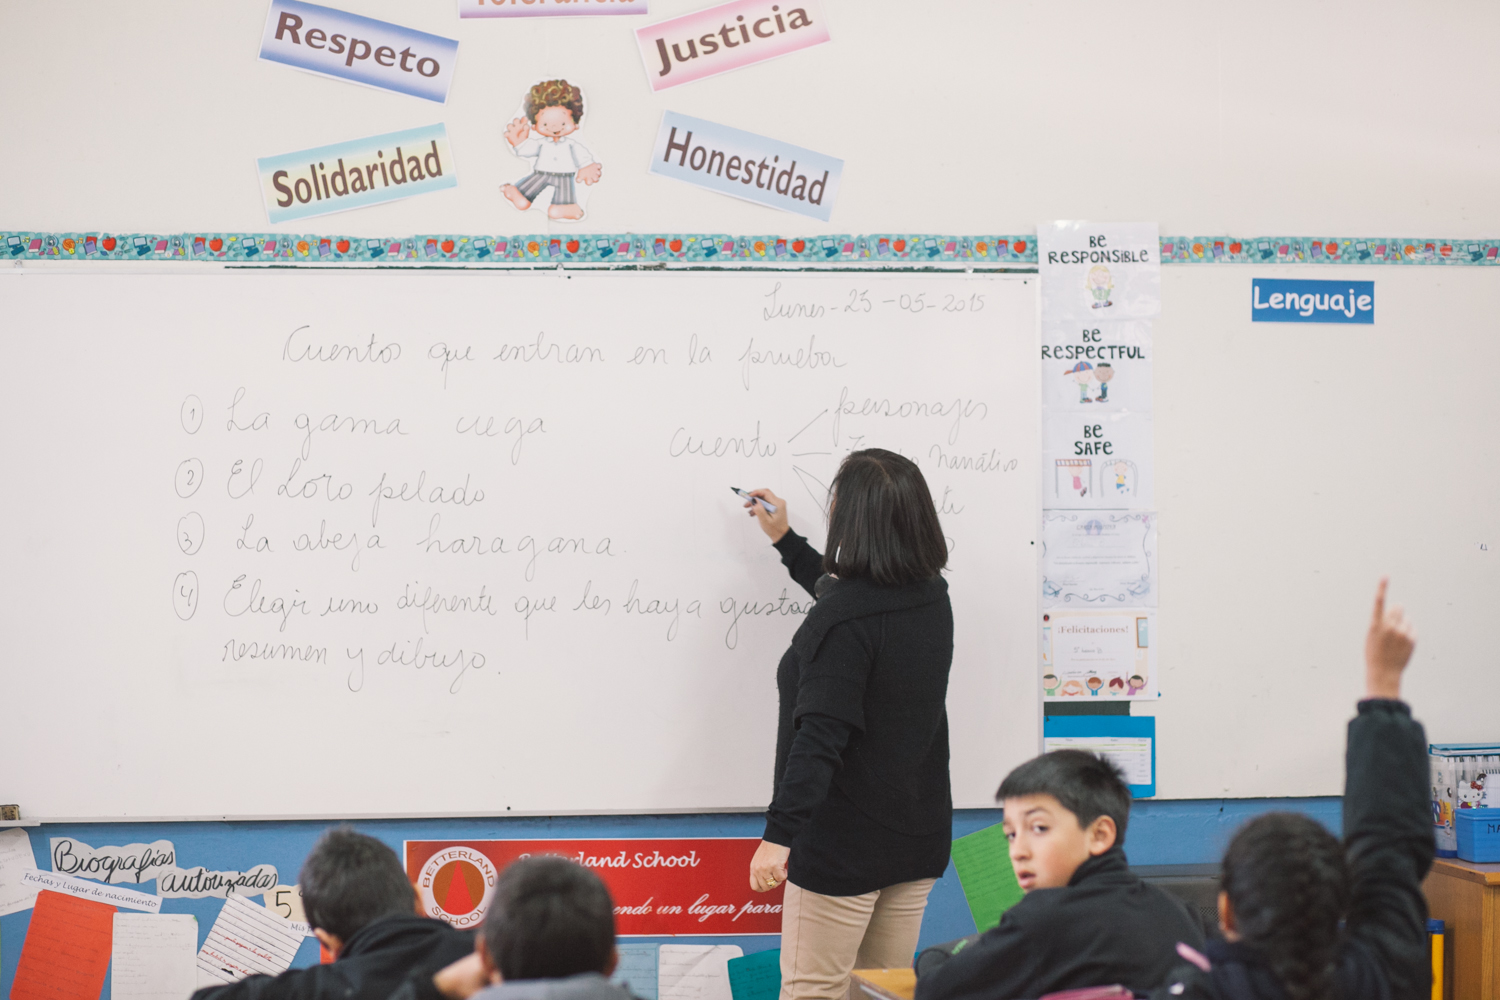 Tolerancia
Respeto
Justicia
Solidaridad
Honestidad
BE
RESPONSIBLE
BE
RESPECTFUL
BE
SAFE
Lenguaje
Lunes-25-05-2015
Cuentos que entran en la prueba
1 La gama ciega
2 El Loro pelado
3 La abeja haragana.
4 Elegir uno diferente que les haya gustad
resumen y dibujo.
cuento
personajes
Narrativo
¡Felicitaciones!
Biografías
autorizadas
Fechas y Lugar de nacimiento
5
BETTERLAND
SCHOOL
Betterland School
endo un lugar para